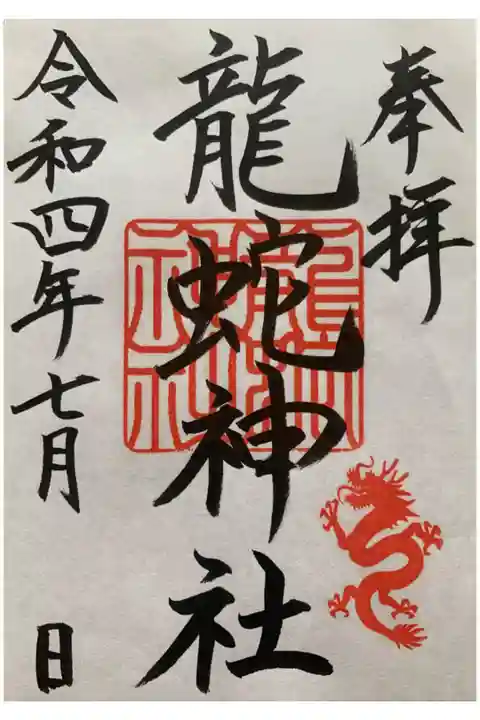 奉拝
龍蛇神社
令和四年七月 日